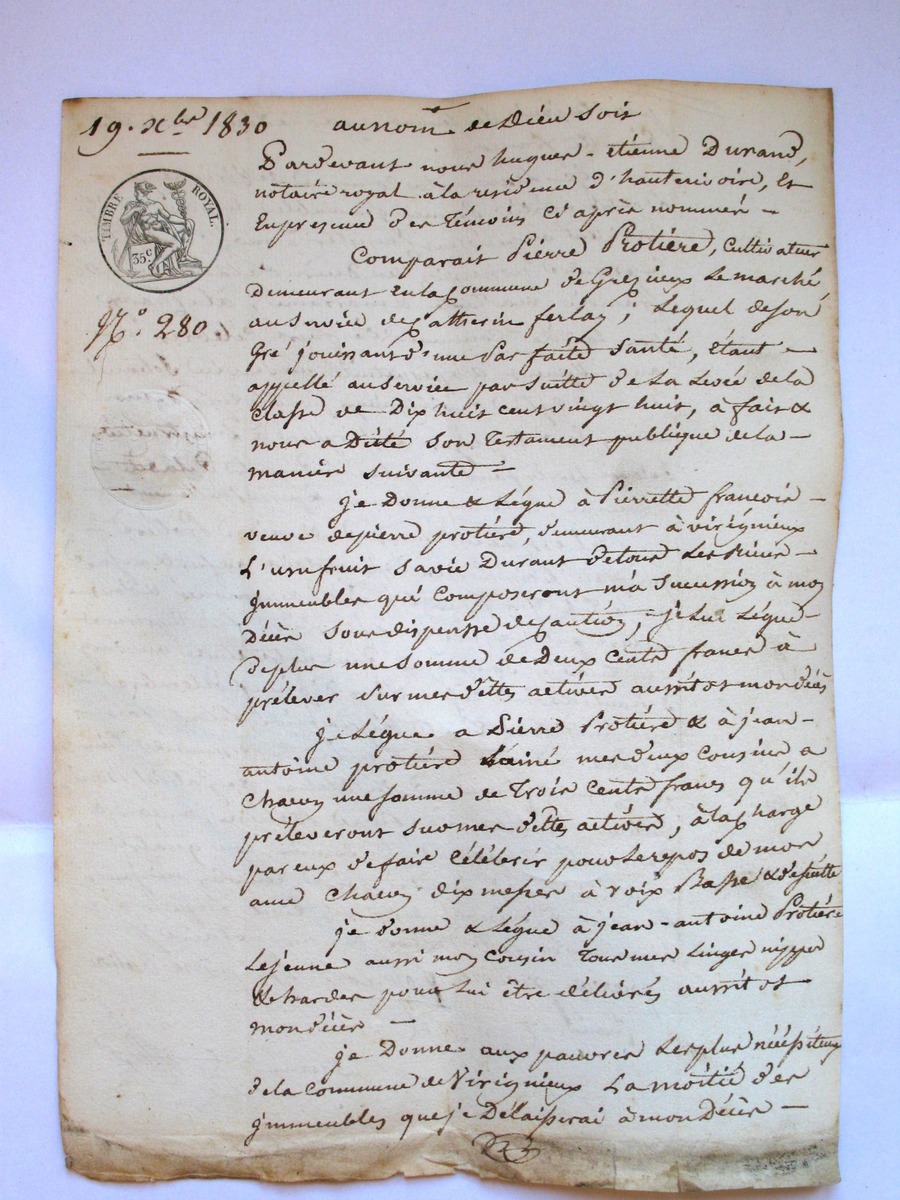 19. Xbre 1830
au nom de Dieu soit
TIMBRE ROYAL
35c
No. 280
Pardevant nous hugues-étienne Durand,
notaire royal à la residence d'hauterivoire, Et
En presence des Témoins Ci après nommés -
Comparait Pierre Protière, Cultivateur
Demeurant En la Commune de Grezieux Le marché,
au Service de Catherin ferlay; Lequel de son
Gré jouissant d'une Parfaite Santé, Etant -
appellé au Service par Suitte de La Levée de la
Classe de Dix huit cent vingt huit, à fait &
nous a Dicté Son Testament publique de la -
maniere suivante -
je Donne & Légue à Pierrette francois -
veuve de pierre protière, demeurant à virigneux
L'usufruit sa vie Durant de tous Les Biens -
jmmeubles qui Composeront ma Sucession à mon
Décès Sous dispensse de Caution, je lui Légue -
de plus une somme de Deux Cents francs à
préléver sur mes dettes actives aussitot mon décès
je Légue a Pierre Protière & à jean -
antoine protière L'ainé mes deux Cousins a
Chacun une somme de Trois Cents francs qu'ils
préleveront sur mes dettes actives, à la Charge
par eux de faire Célébrér pour Le repos de mon
ame Chacun dix messes à voix Basse & de suitte
je donne & Légue à jean-antoine Protière
Le jeune aussi mon Cousin Tous mes Linges nippes
& hardes pour Lui être délivrés aussitot
mon décès -
je Donne aux pauvres Les plus nécéssiteux
de la Commune de Virigneux La moitié des
jmmeubles que je Délaisserai à mon Décès -